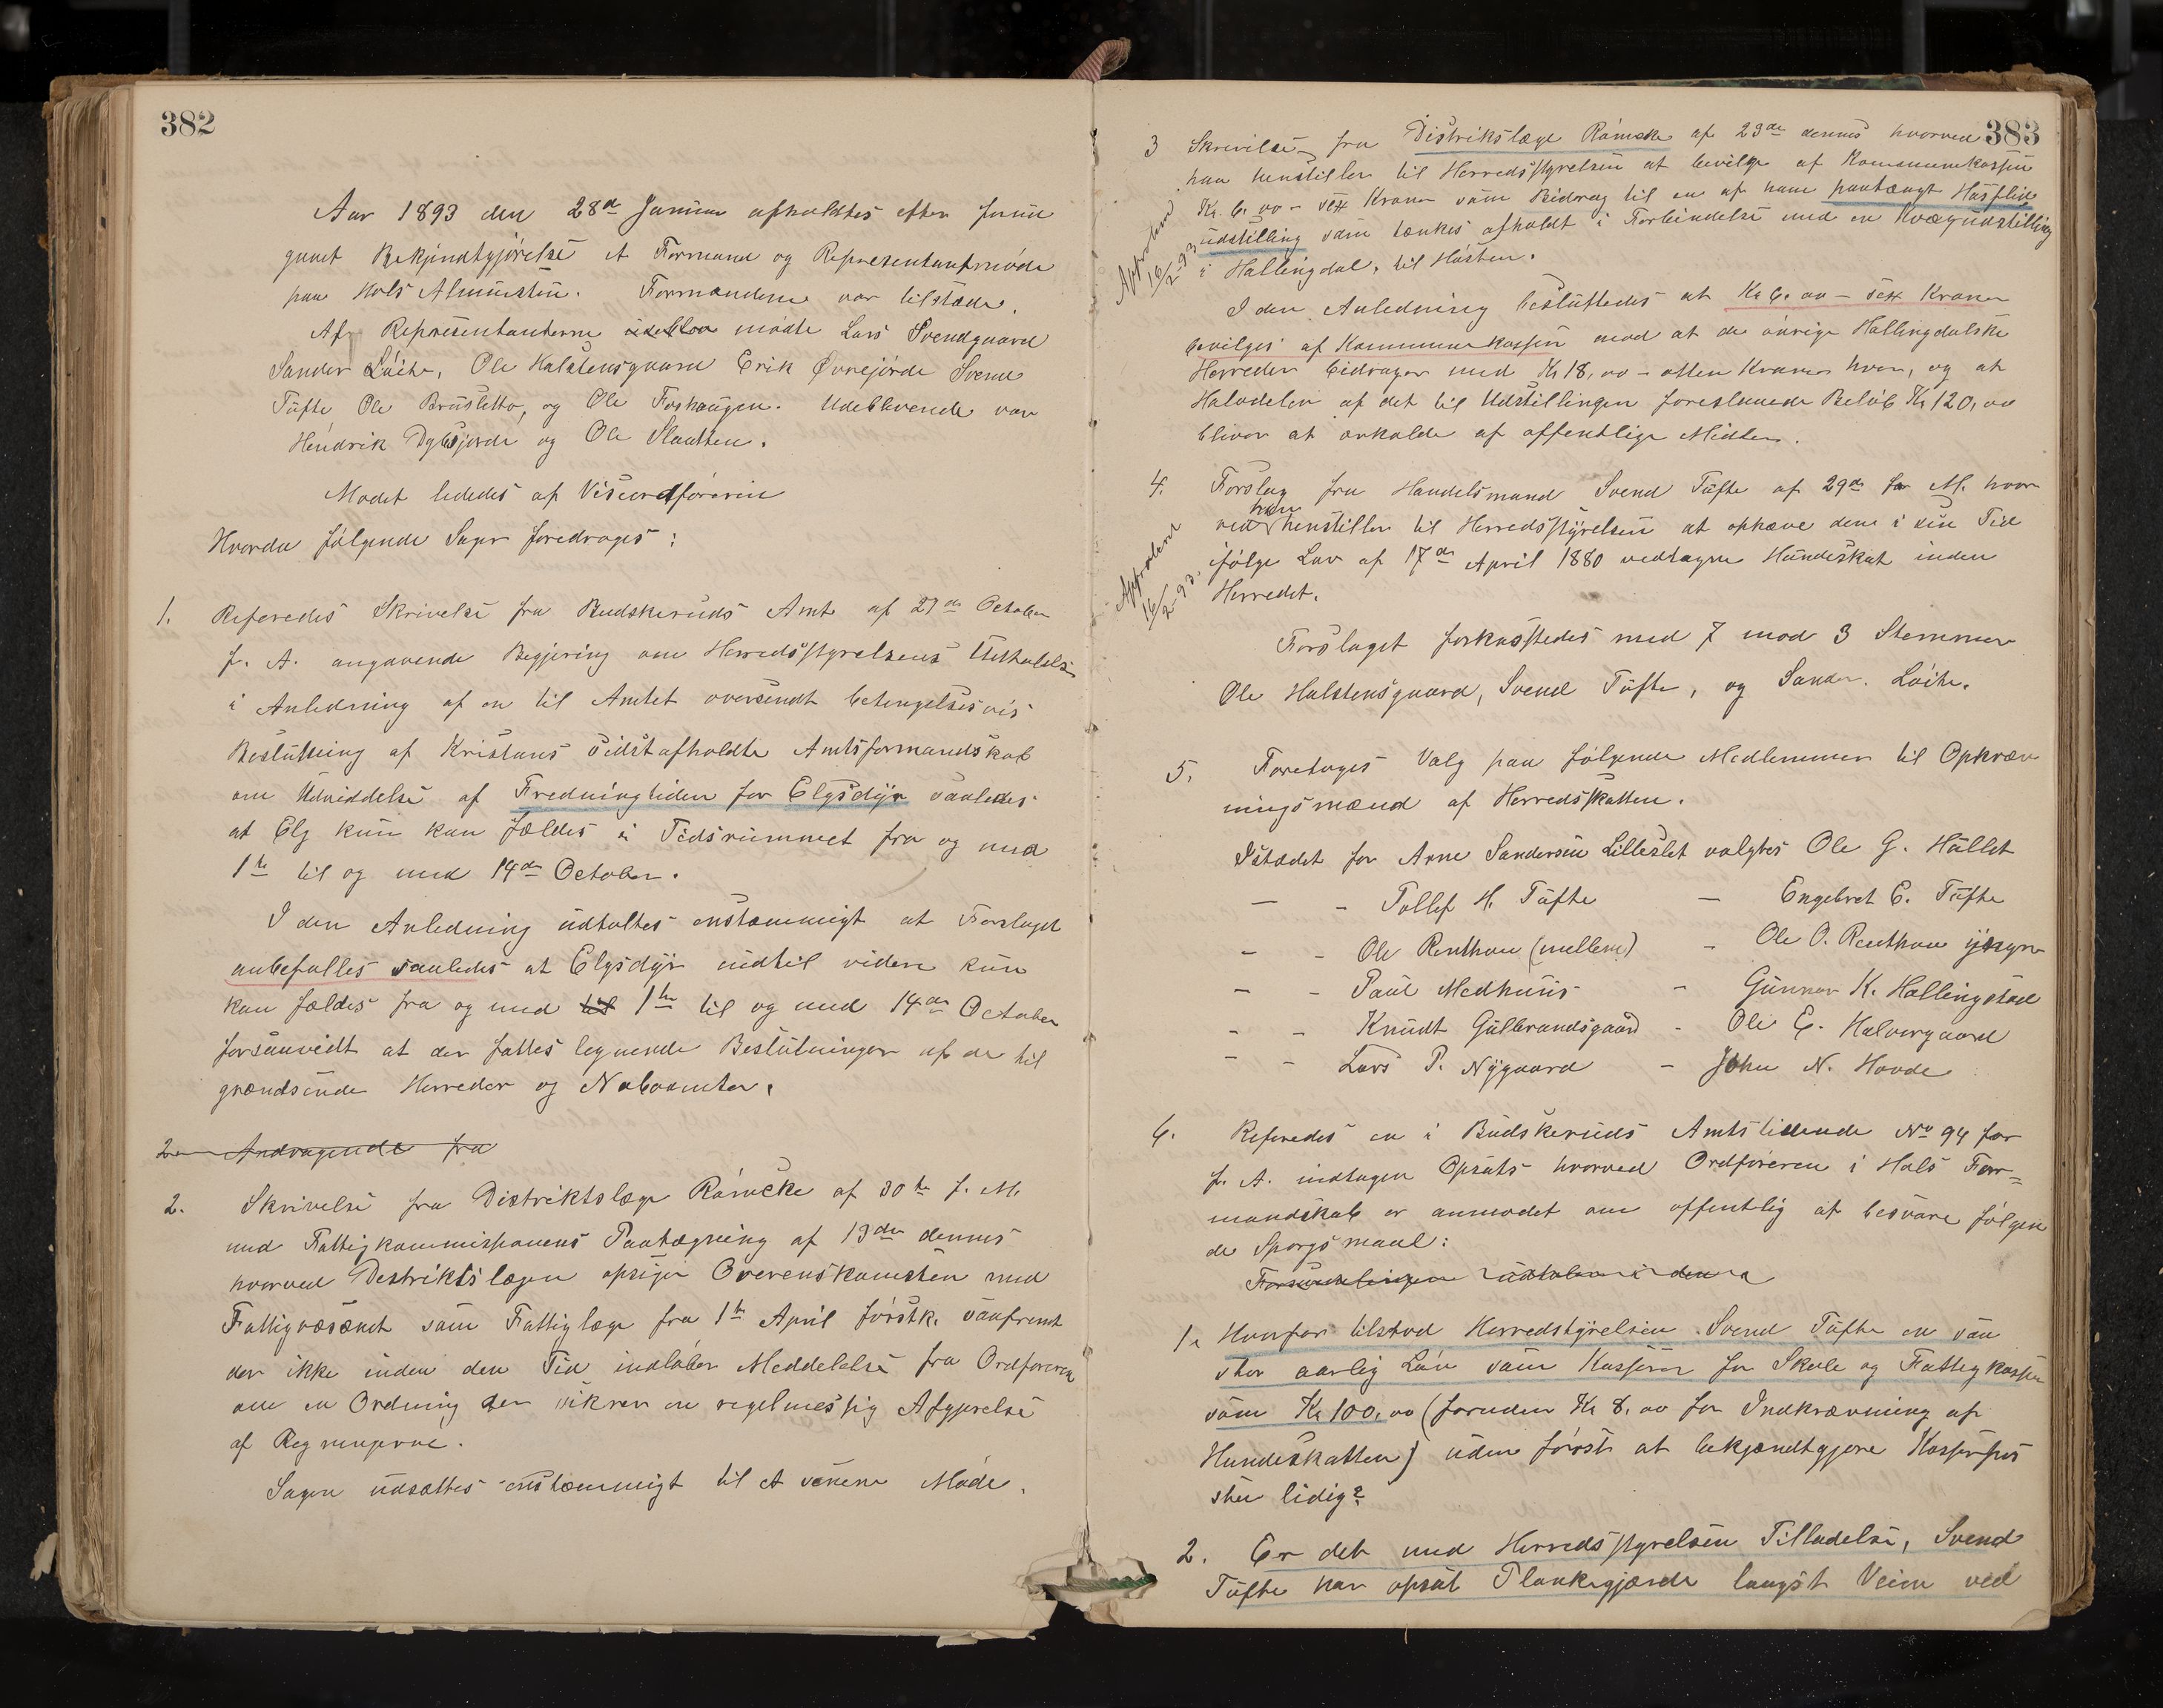 382
Aar 1893 den 28de Januar afholdtes efter forud
gaaet Bekjendtgjørelse et Formand og Representantmøde
paa Hols Almuestue. Formændene var tilstæde.
Af Representanterne mødte Lars Svendgaard
Sander Løite, Ole Halstensgaard Erik Øvrejorde Svend
Tufte Ole Brusletto, og Ole Foshaugen. Udeblevende var
Hendrik Dybsjorde og Ole Slaatten.
Mødet lededes af Viseordføreren
Hvorda følgende Sager foredroges:
1. Referedes Skrivelse fra Budskeruds Amt af 27de October
f. A. angaaende Begjæring om Herredsstyrelsens Udtalelse
i Anledning af en til Amtet oversendt betingelsesvis
Beslutning af Kristans sidstafholdte Amtsformandskab
om Udviddelse af Fredningtiden for Elgsdyr saaledes
at Elg kun kan fældes i Tidsrummet fra og med
1te til og med 14de October.
I den Anledning udtaltes enstemmigt at Forslaget
anbefalles saaledes at Elgsdyr indtil videre kun
kan fældes fra og med til 1te til og med 14de October
forsaavidt at der fattes lignende Beslutninger af de til
grændsende Herreder og Naboamter.
2. Andragende fra
2. Skrivelse fra Distriktslæge Rámcke af 30te f. M.
med Fattigkommissionens Paategning af 13de dennes
hvorved Destriktslægen opsiger Overenskomsten med
Fattigvæsenet som Fattiglæge fra 1te April førstk. saafremt
der ikke inden den Tid indløber Meddelelse fra Ordføreren
om en Ordning der sikrer en regelmessig Afgjørelse
af Regningerne.
Sagen udsættes enstemmigt til et senere Møde.
383
3 Skrivelse fra Distrikslæge Rámcke af 23de dennes hvorved
han henstiller til Herredsstyrelsen at bevilge af Kommunekassen
Kr. 6.00 – sex Kroner som Bidrag til en af ham paatængt Husflids
udstilling som tænkes afholdt i Forbindelse med en Kvægudstilling
i Hallingdal, til Høsten.
Approberet
16/2-93
I den Anledning besluttedes at Kr 6.00 – sex Kroner
bevilges af Kommunekassen mod at de øvrige Hallingdalske
Herreder bidrager med Kr 18,00 – atten Kroner hver, og at
Halvdelen af det til Udstillingen foreslaaede Beløb Kr 120,00
bliver at erholde af offentlige Midler.
4. Forslag fra Handelsmand Svend Tufte af 29de f. M. hvor
ved han henstiller til Herredsstyrelsen at ophæve den i sin Tid
ifølge Lov af 17de April 1880 vedtagne Hundeskat inden
Herredet.
Approberet
16/2-93.
Forslaget forkastedes med 7 mod 3 Stemmer
Ole Halstensgaard, Svend Tufte, og Sander Løite.
5. Foretoges Valg paa følgende Medlemmer til Opkræv
ningsmænd af Herredsskatten.
Istædet for Arne Sandersen Lilleslet valgtes Ole G. Hullet
— - Tollef H. Tufte — Engebret E. Tufte
- - Ole Reuthon (mellem) - Ole O. Reuthon
- - Paul Medhuus - Gunnar K. Hallingstad
- - Knudt Gulbrandsgaard - Ole E. Halvorgaard
- - Lars P. Nygaard - John N. Hovde
6. Referedes en i Budskeruds Amtstidende No 94 for
f. A. indtagen Opsats hvorved Ordføreren i Hols For=
mandskab er anmodet om offentlig at besvare følgen
de Spørgsmaal:
Forsamlingen udtaler i den
1. Hvorfor tilstod Herredstyrelsen Svend Tufte en saa
stor aarlig Løn som Kasserer for Skole og Fattigkassen
som Kr 100,00 (foruden Kr 8.00 for Indkrævning af
Hundeskatten) uden først at bekjendtgjøre Kasserpos
sten lidig?
2. Er det med Herredsstyrelsen Tilladelse, Svend
Tufte har opsat Plankegjærde langst Veien ved